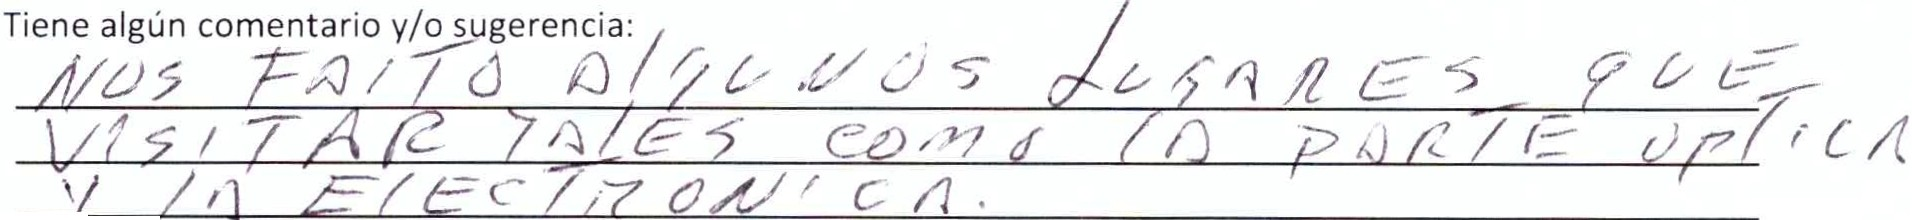 Tiene algún comentario y/o sugerencia:
NOS FALTO ALGUNOS LUGARES QUE
VISITAR TALES COMO LA PARTE OPTICA
Y LA ELECTRONICA.